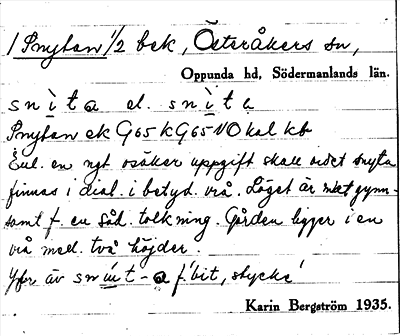 1 Snytan 1/2 bek, Österåkers sn,
Oppunda hd, Södermanlands län.
snìta el. snìta
Snytan ek G65 K G65 NO kal kb
Enl. en ngt osäker uppgift skall ordet snyta
finnas i dial. i betyd. vrå. Läget är mkt gynn-
samt f. en såd. tolkning. Gården ligger i en
vrå mell. två höjder.
Jfr äv snut-a f. 'bit, stycke'
Karin Bergström 1935.